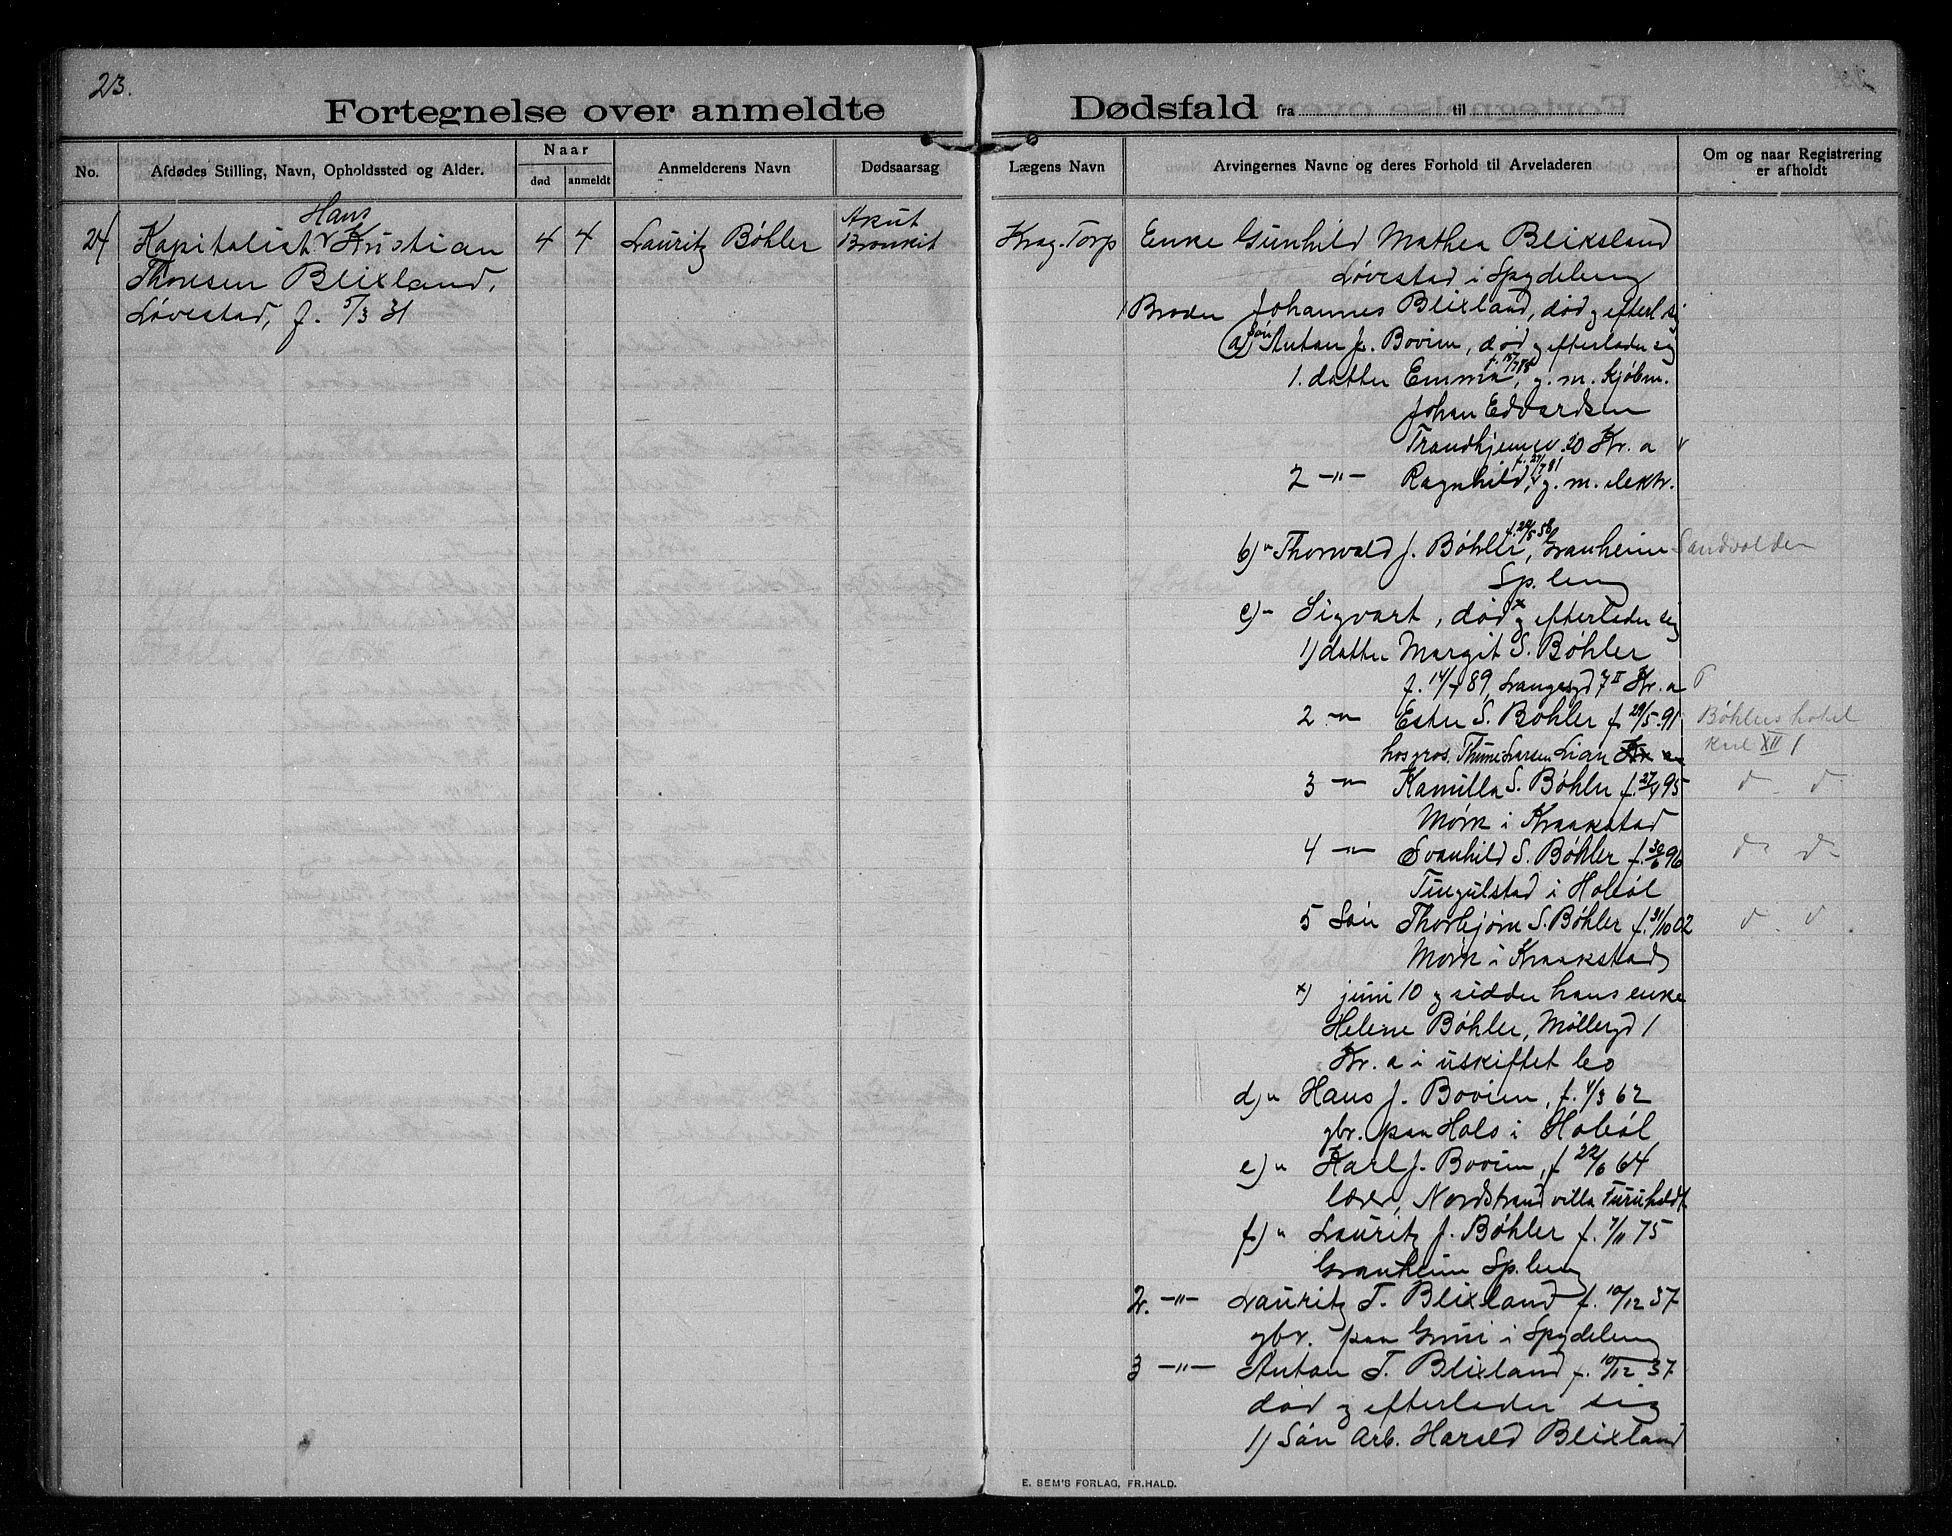 23.
Fortegnelse over anmeldte
Dødsfald fra til
No.
Afdødes Stilling, Navn, Opholdssted og Alder.
Naar
død
anmeldt
Anmelderens Navn
Dødsaarsag
Lægens Navn
Arvingernes Navne og deres Forhold til Arveladeren
Om og naar Registrering
er afholdt
24
Hans
Kapitalist Kristian
Thoresen Blixland,
Løvestad, f. 5/3 31
4
4
Lauritz Bøhler
Akut
Bronkit
Krag-Torp
Enke Gunhild Mathea Blixland
Løvestad i Spydeberg
1 Broder Johannes Blixland, død og efterl. sig
a) søn Anton J. Bovim, død og efterlader sig
1. datter Emma, g. m. Kjøbm.
Johan Edvardsen
Trondhjemsv. 20 Kr. a
2 -"- Ragnhild, g. m. elektr.
b) " Thorvald J. Bøhler, Granheim
Sp.berg
c) - Sigvart, død x og efterlader sig
1) datter Margit S. Bøhler
f. 14/7 89, Langesgd 7 II Kr. a
2 -"- Ester S. Bøhler f. 29/5 91
Bøhlers hotel
hos gros. Thune Larsen Lian Kr. a
XII 1
3 -"- Kamilla S. Bøhler f. 27/4 95
Mørk i Kraakstad
4 -"- Svanhild S. Bøhler f. 30/6 96
Tingulstad i Hobøl
5 Søn Thorbjørn S. Bøhler f. 31/10 02
Mørk i Kraakstad
x) juni 10 og sidder hans enke
Helene Bøhler, Møllergd 1
Kr. a i uskiftet bo
d) " Hans J. Bovim, f. 4/3 62
gbr. paa Hols i Hobøl
e) " Karl J. Bovim, f. 22/6 64
lærer, Nordstrand villa Furuholdt
f) " Lauritz J. Bøhler f. 7/11 75
Granheim Sp.berg
2. -"- Lauritz T. Blixland f. 10/12 37
gbr. paa Grini i Spydeberg
3 -"- Anton T. Blixland f. 10/12 37
død og efterlader sig
1) Søn Arb. Harald Blixland
E. SEM'S FORLAG, FR.HALD.